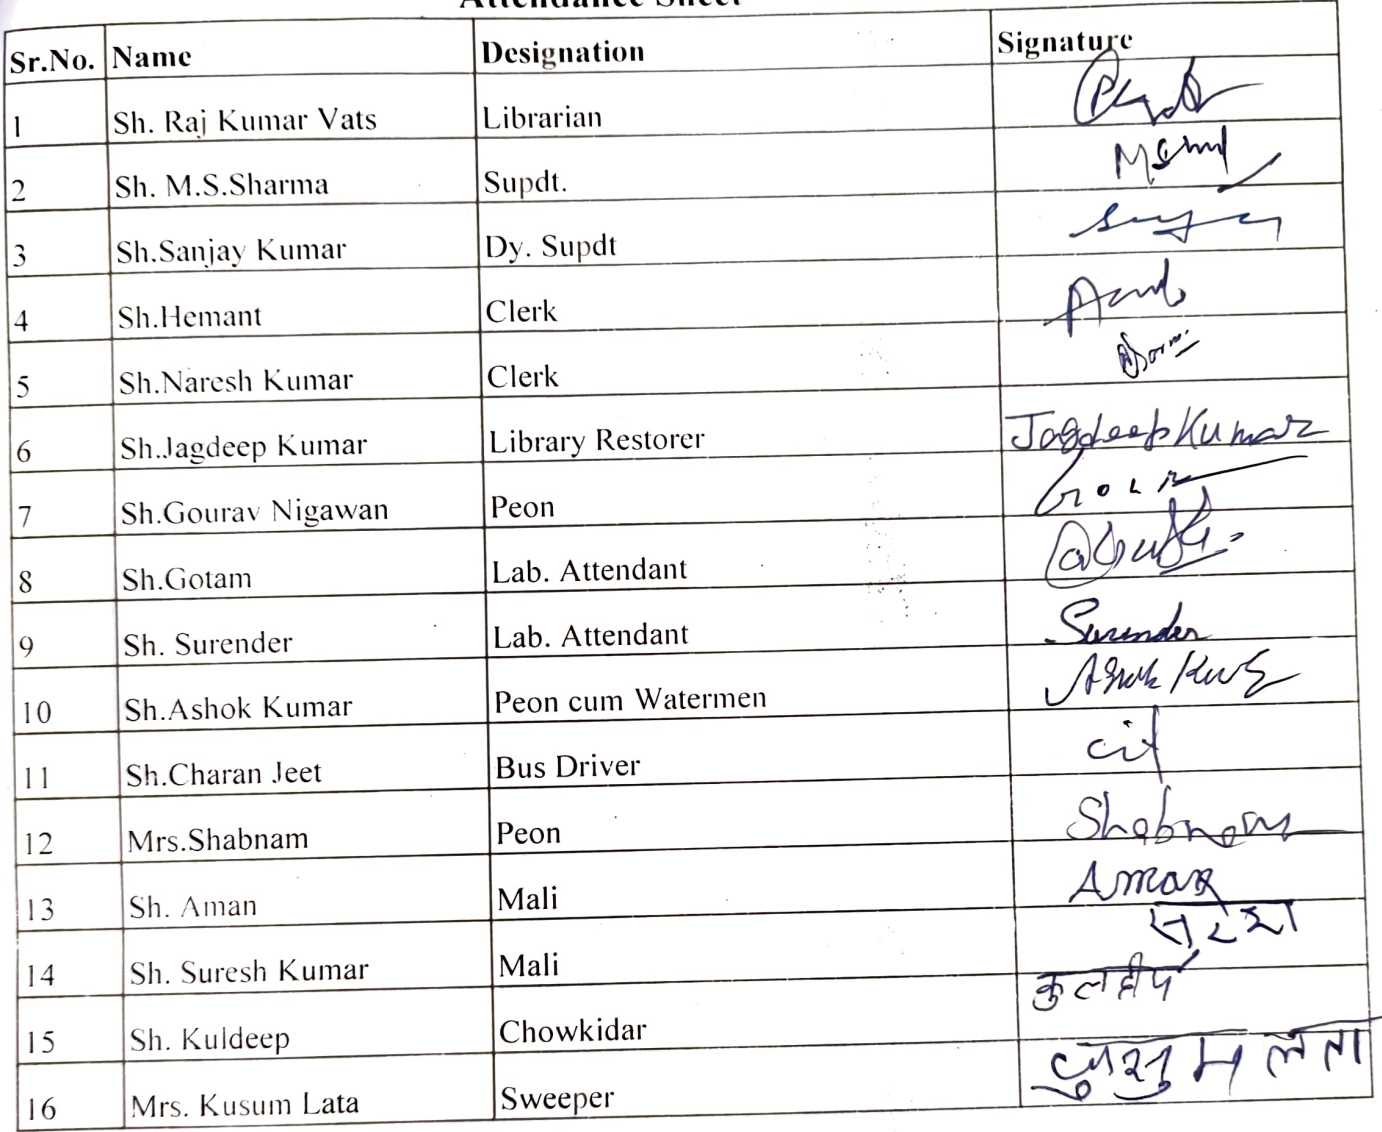 Attendance Sheet
Sr.No. Name Designation Signature
1 Sh. Raj Kumar Vats Librarian
2 Sh. M.S.Sharma Supdt.
3 Sh.Sanjay Kumar Dy. Supdt
4 Sh.Hemant Clerk
5 Sh.Naresh Kumar Clerk
6 Sh.Jagdeep Kumar Library Restorer Jagdeep Kumar
7 Sh.Gourav Nigawan Peon
8 Sh.Gotam Lab. Attendant
9 Sh. Surender Lab. Attendant Surender
10 Sh.Ashok Kumar Peon cum Watermen
11 Sh.Charan Jeet Bus Driver
12 Mrs.Shabnam Peon Shabnam
13 Sh. Aman Mali Aman
14 Sh. Suresh Kumar Mali
15 Sh. Kuldeep Chowkidar कुलदीप
16 Mrs. Kusum Lata Sweeper